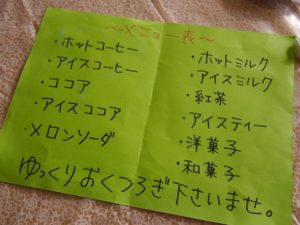 ～メニュー表～
・ホットコーヒー
・アイスコーヒー
・ココア
・アイスココア
・メロンソーダ
・ホットミルク
・アイスミルク
・紅茶
・アイスティー
・洋菓子
・和菓子
ゆっくりおくつろぎ下さいませ。